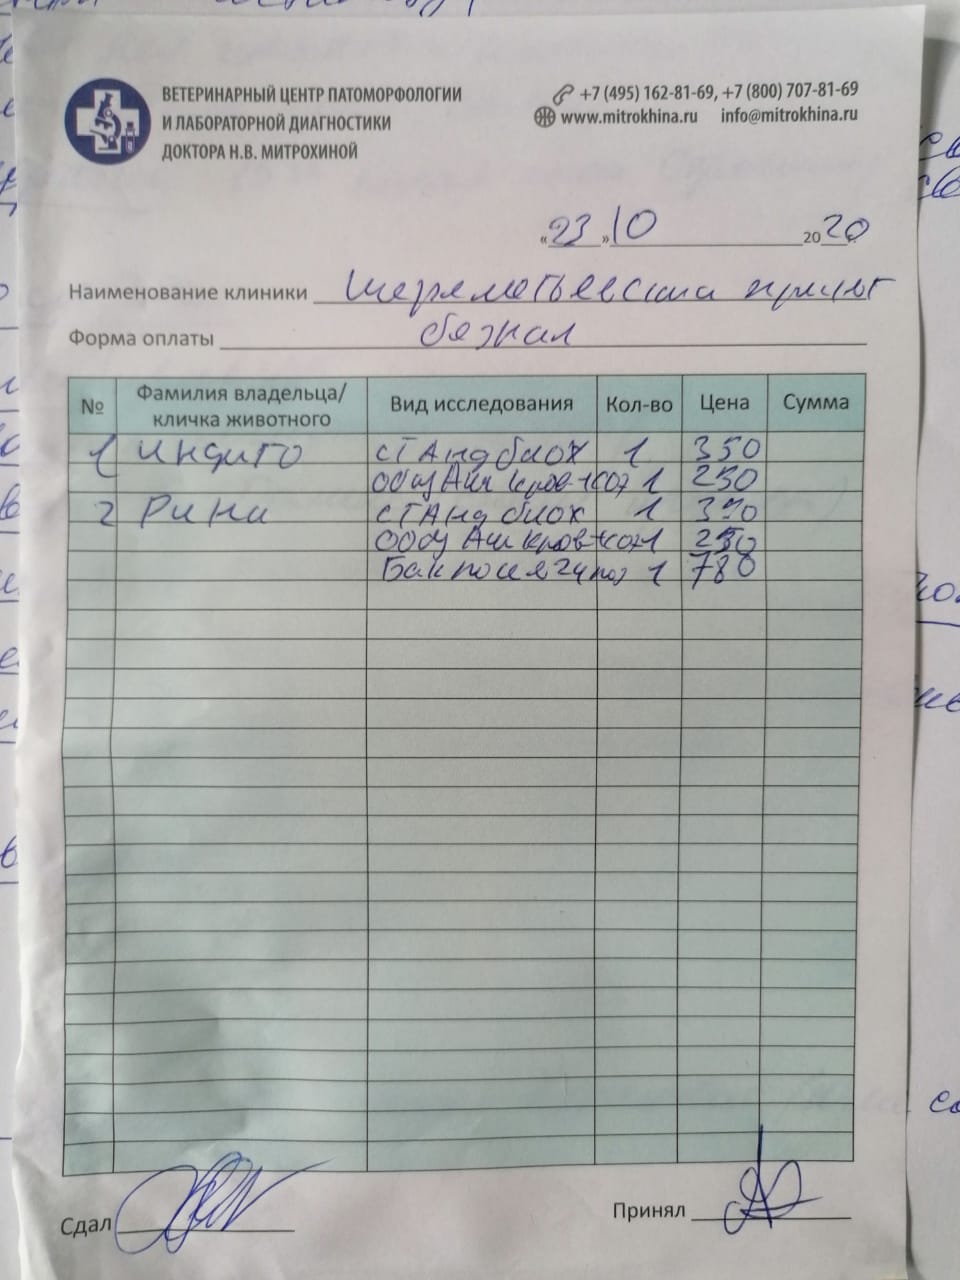 ВЕТЕРИНАРНЫЙ ЦЕНТР ПАТОМОРФОЛОГИИ
И ЛАБОРАТОРНОЙ ДИАГНОСТИКИ
ДОКТОРА Н.В. МИТРОХИНОЙ
+7 (495) 162-81-69, +7 (800) 707-81-69
www.mitrokhina.ru info@mitrokhina.ru
«23» 10 2020
Наименование клиники Шереметьевский приют
Форма оплаты безнал
№ Фамилия владельца/ кличка животного Вид исследования Кол-во Цена Сумма
1 Индиго станд биох 1 350
общ Ан кров+соэ 1 250
2 Рини станд биох 1 350
общ Ан кров+соэ 1 250
Бак посев 1 780
Сдал
Принял